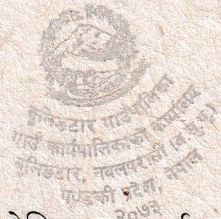 बुलिङटार गाउँपालिका
गाउँ कार्यपालिकाको कार्यालय
बुलिङटार, नवलपरासी (ब.सु.पू.)
गण्डकी प्रदेश, नेपाल
२०७३